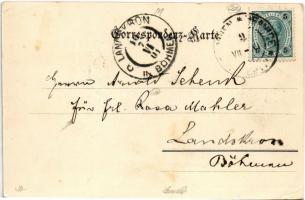 LANDSKRON
IN BÖHMEN
Correspondenz-Karte
5
Herrn Arnold Schenk
für Frl. Rosa Mahler
Landskron
Böhmen